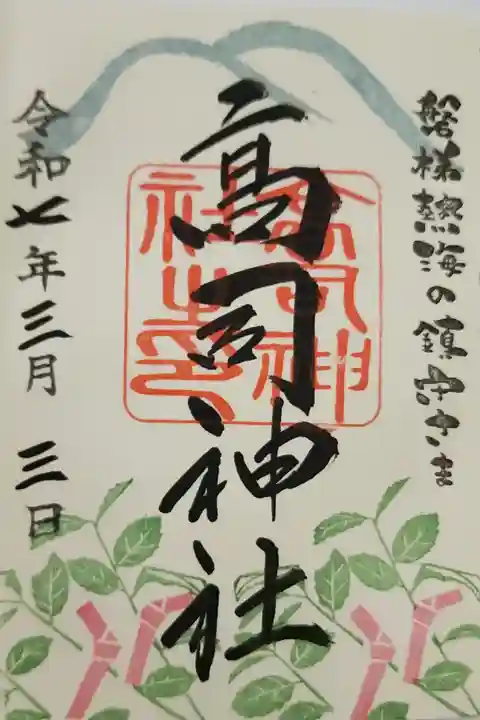 磐梯熱海の鎮守さま
高司神社
高司神社之印
令和七年三月三日